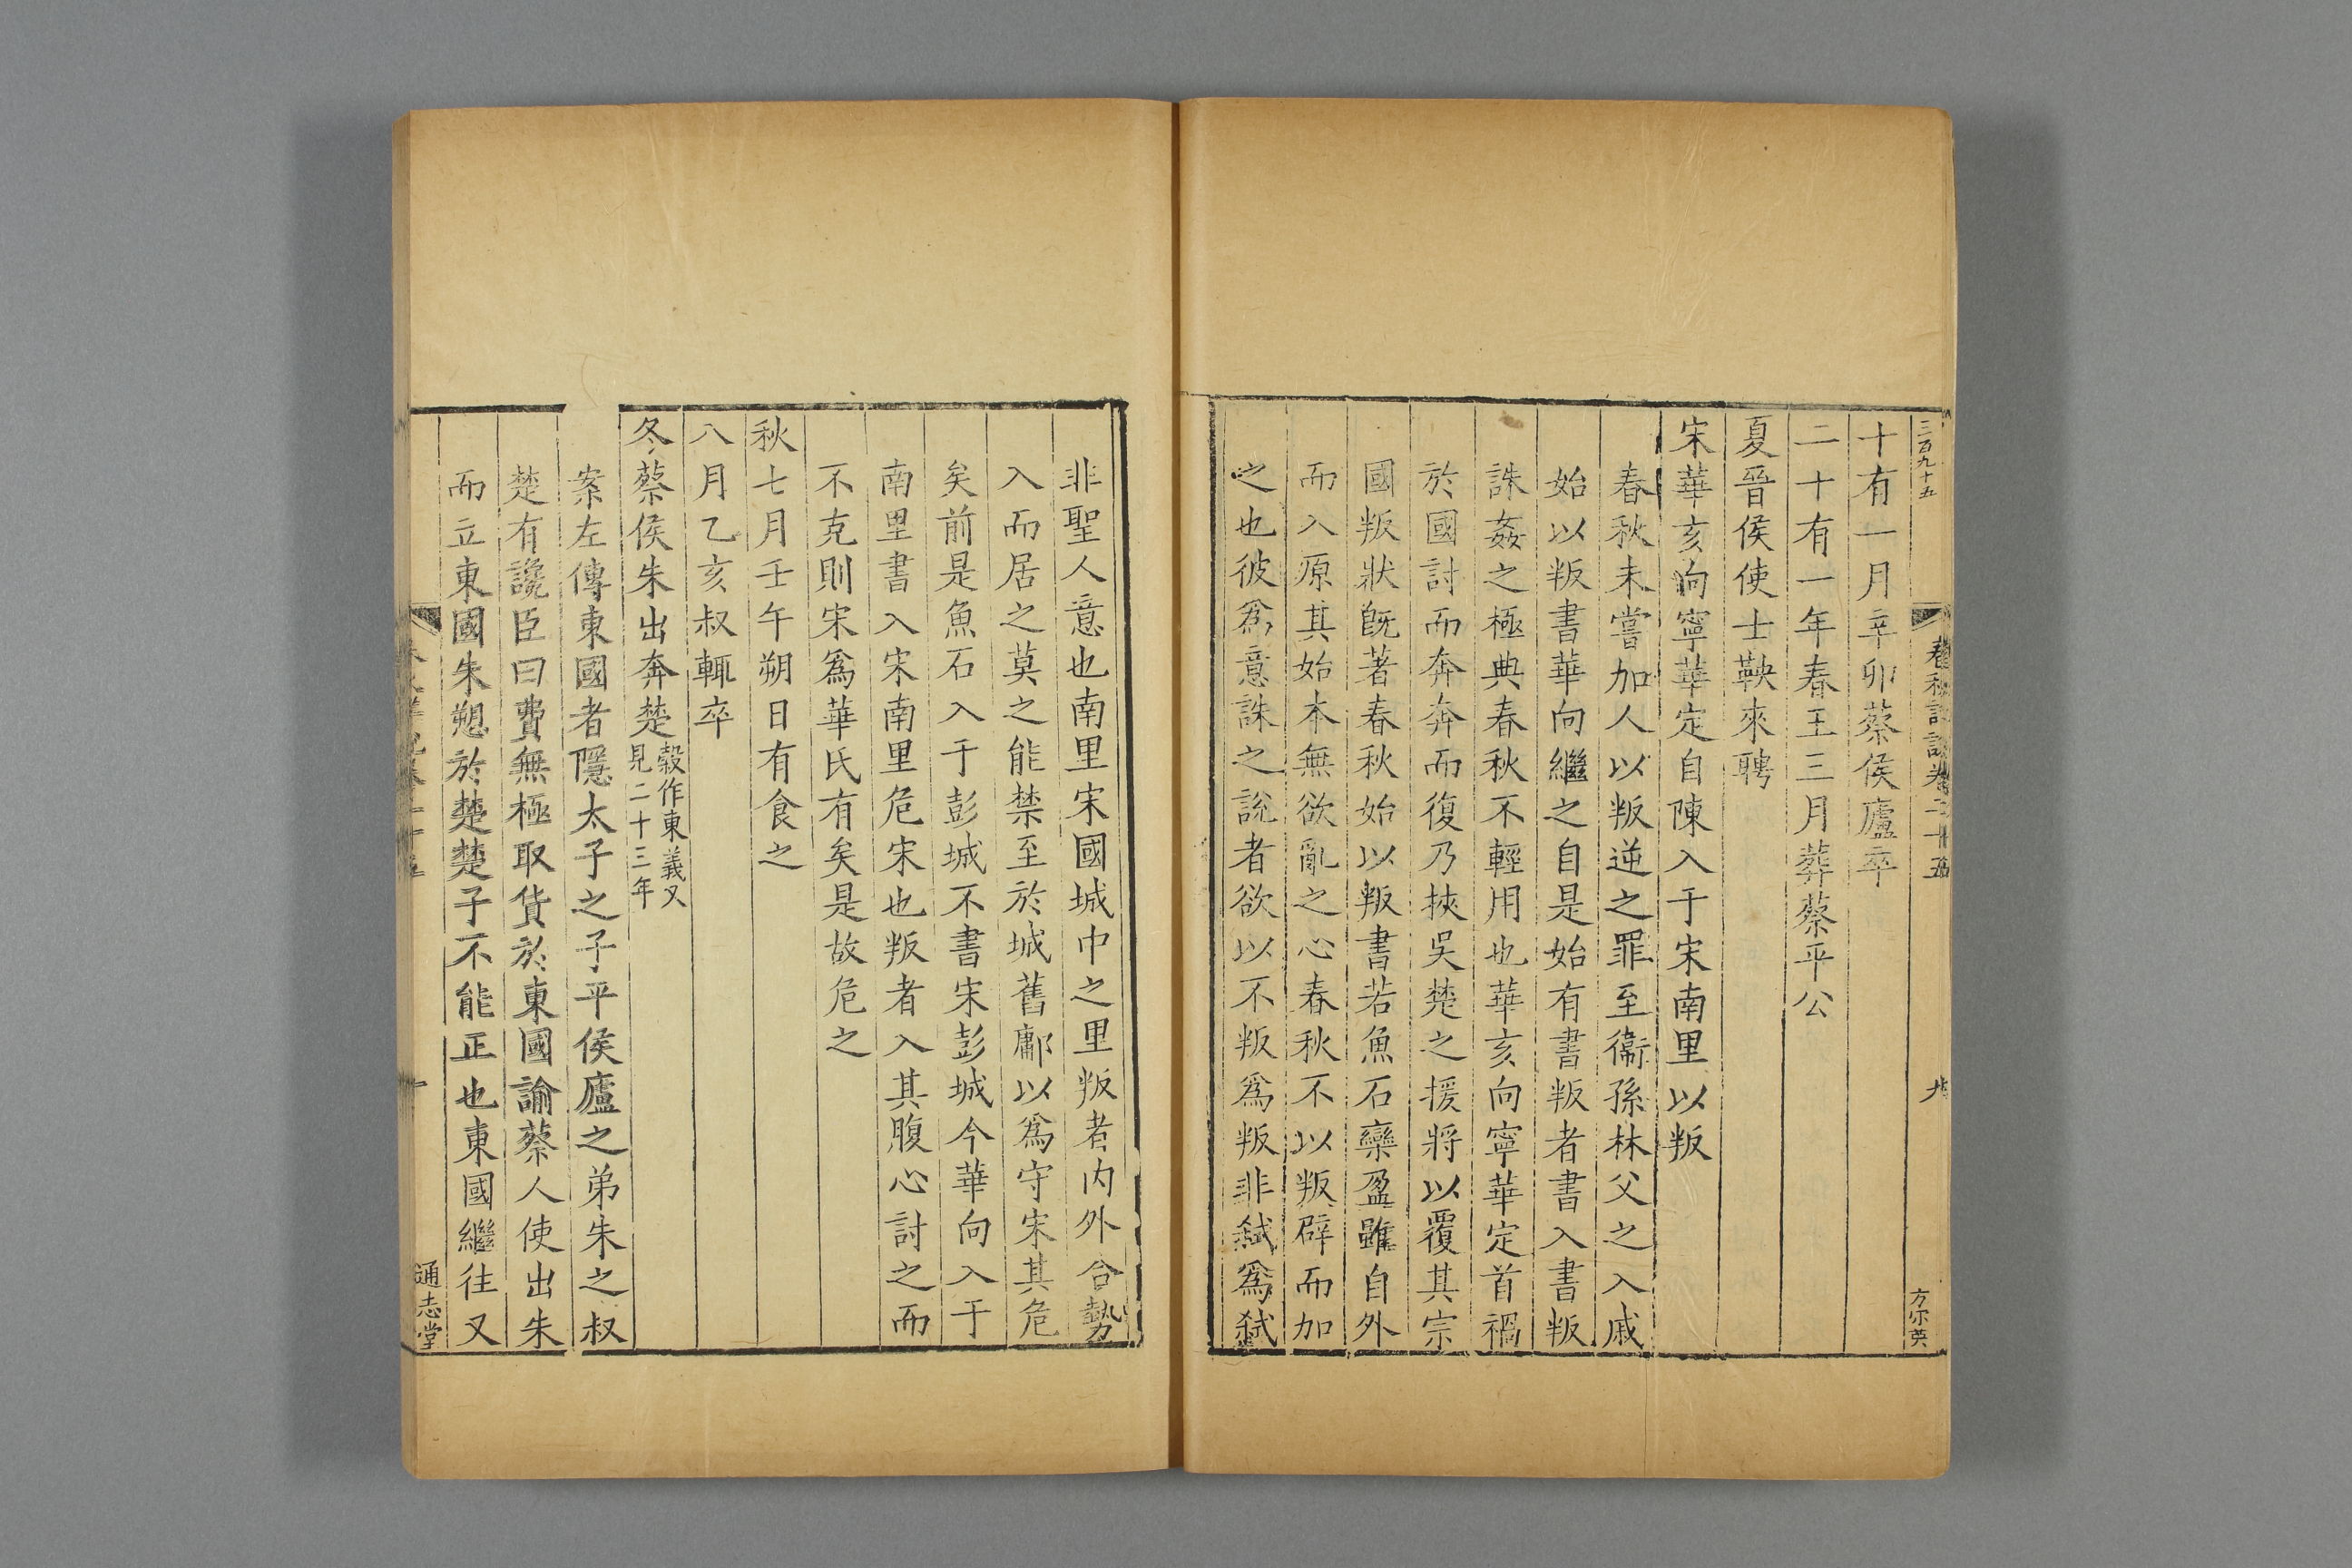 三百九十五
春秋詳說卷二十五
方宗英
十有一月辛卯蔡侯廬卒
二十有一年春王三月葬蔡平公
夏晉侯使士鞅來聘
宋華亥向寧華定自陳入于宋南里以叛
春秋未嘗加人以叛逆之罪至衞孫林父之入戚
始以叛書華向繼之自是始有書叛者書入書叛
誅姦之極典春秋不輕用也華亥向寧華定首禍
於國討而奔奔而復乃挾吳楚之援將以覆其宗
國叛狀旣著春秋始以叛書若魚石欒盈雖自外
而入原其始本無欲亂之心春秋不以叛辟而加
之也彼爲意誅之說者欲以不叛爲叛非弑爲弑
非聖人意也南里宋國城中之里叛者內外合勢
入而居之莫之能禁至於城舊鄘以爲守宋其危
矣前是魚石入于彭城不書宋彭城今華向入于
南里書入宋南里危宋也叛者入其腹心討之而
不克則宋爲華氏有矣是故危之
秋七月壬午朔日有食之
八月乙亥叔輒卒
冬蔡侯朱出奔楚穀作東義又見二十三年
案左傳東國者隱太子之子平侯廬之弟朱之叔
楚有讒臣曰費無極取貨於東國諭蔡人使出朱
而立東國朱愬於楚楚子不能正也東國繼往又
通志堂